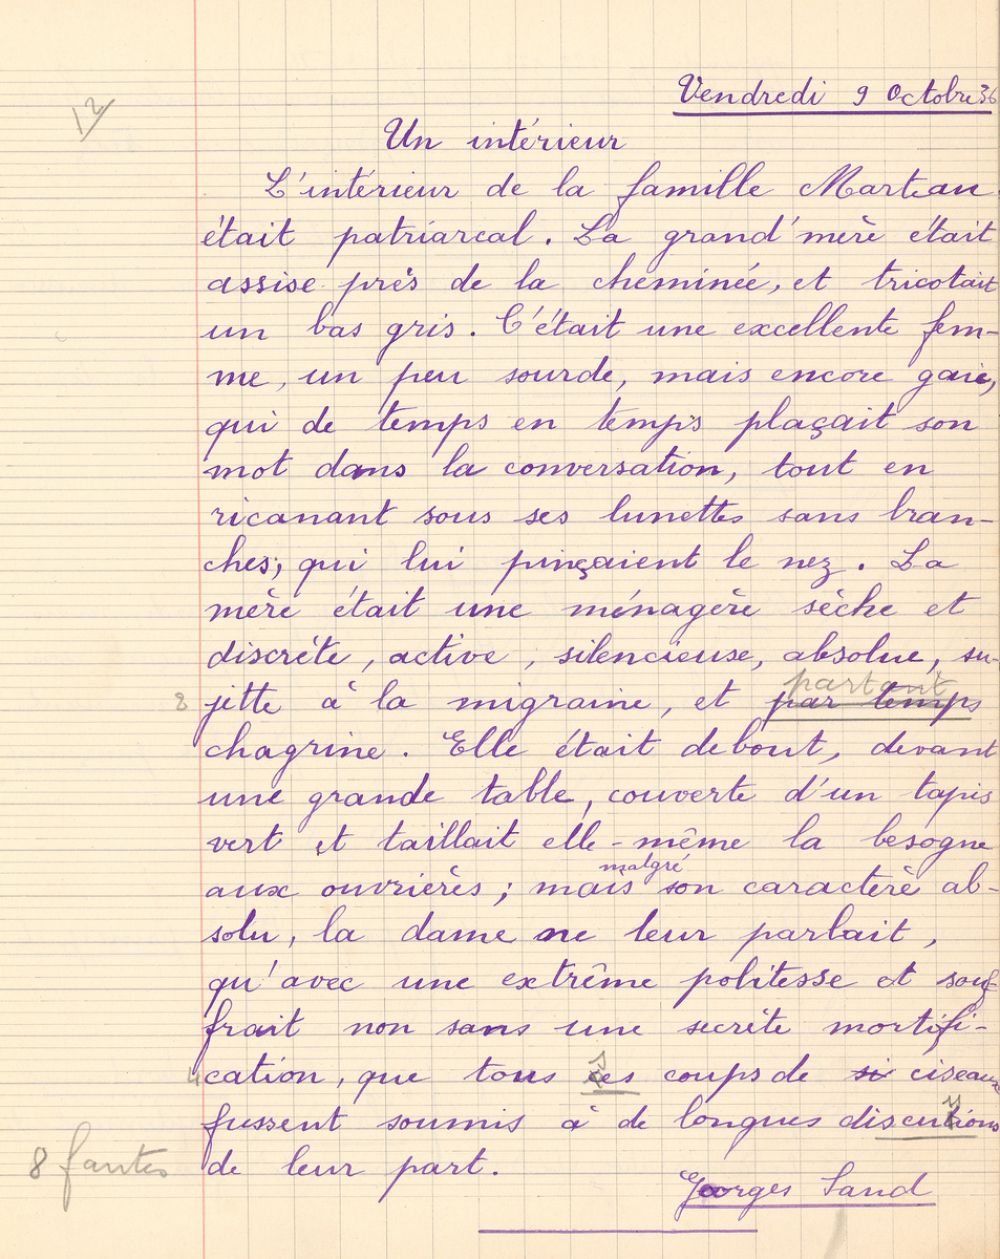 Vendredi 9 Octobre 36
12
Un intérieur
L'intérieur de la famille Marteau
était patriarcal. La grand'mère était
assise près de la cheminée, et tricotait
un bas gris. C'était une excellente fem-
me, un peu sourde, mais encore gaie,
qui de temps en temps plaçait son
mot dans la conversation, tout en
ricanant sous ses lunettes sans bran-
ches; qui lui pinçaient le nez. La
mère était une ménagère sèche et
discrète, active, silencieuse, absolue, su-
partant
8 jette à la migraine, et par temps
chagrine. Elle était debout, devant
une grande table, couverte d'un tapis
vert et taillait elle-même la besogne
malgré
aux ouvrières; mais son caractère ab-
solu, la dame ne leur parlait,
qu'avec une extrême politesse et souf
frait non sans une secrète mortifi-
4 cation, que tous ses coups de si ciseaux
fussent soumis à de longues discutions
8 fautes
de leur part.
Georges Sand